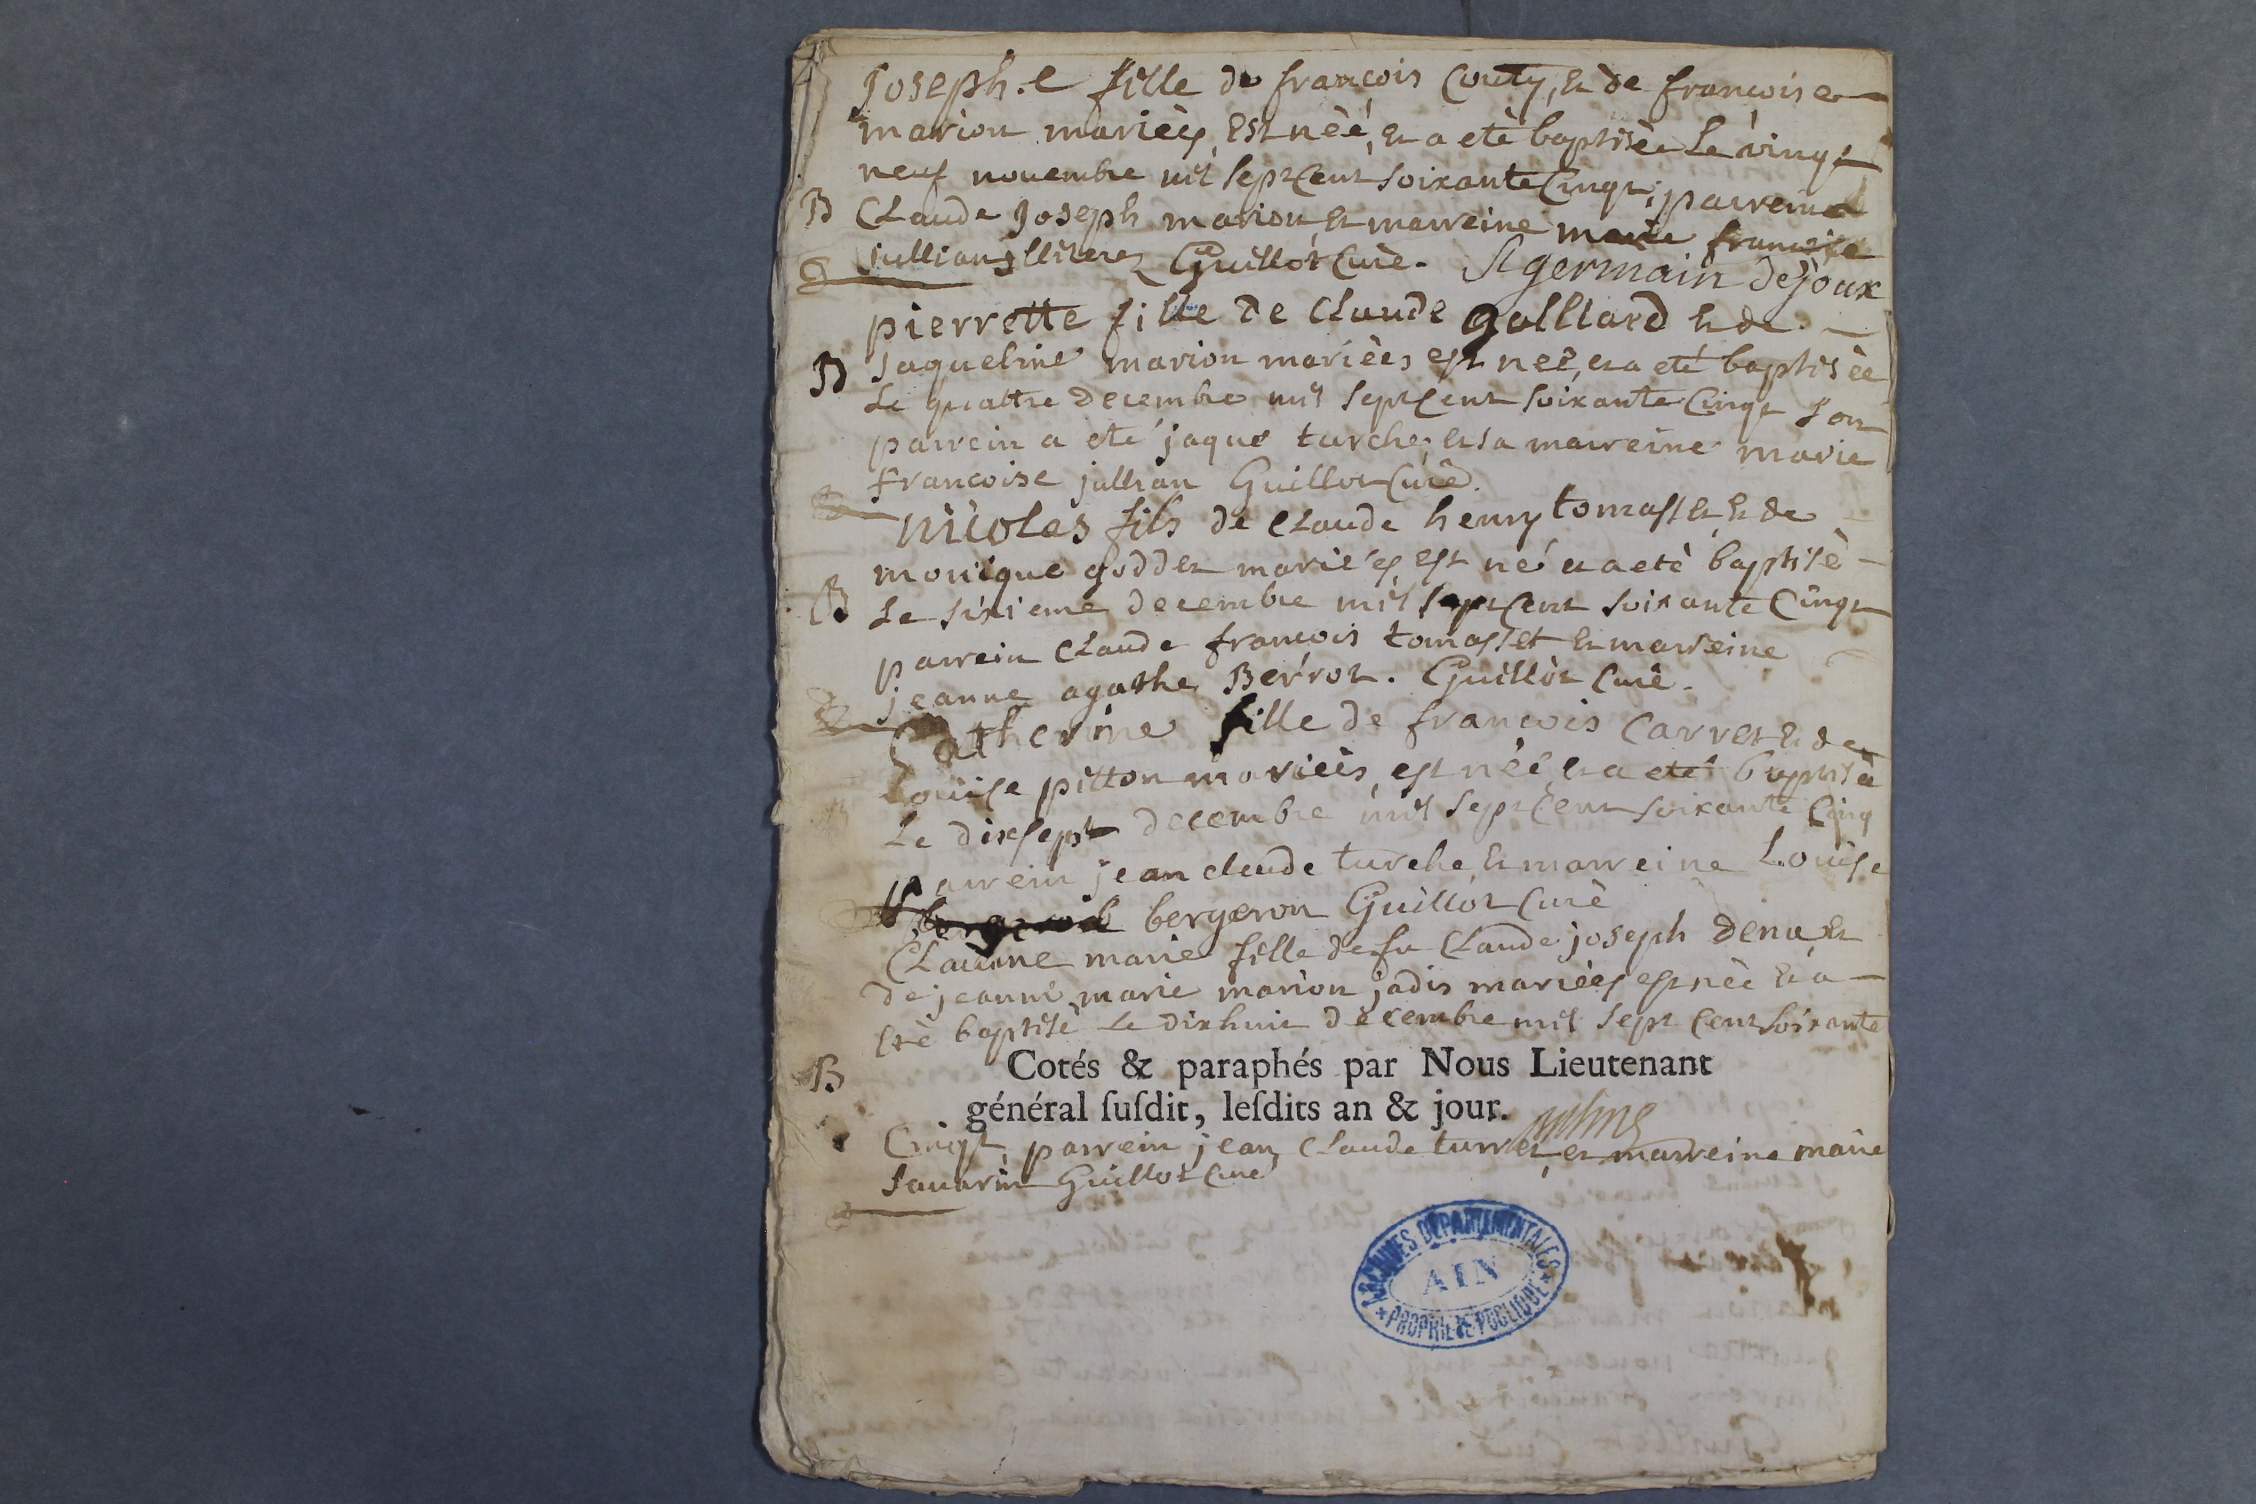 Joseph.e fille de françois Couty, et de françoise
marion marièes, Est nèé, et a etè baptisèe Le vingt
neuf novembre mil Sept Cent Soixante Cinqt; parrein
B Claude Joseph marion, et marreine marie françoise
jullian illiterez Guillot Curè. St germain de Joux
pierrette fille de Claude galliard et de
B Jaqueline marion marièes est neé, et a eté baptisèe
Le quattre decembre mil Sept Cent Soixante Cinqt Son
parrein a eté jaque turche, et sa marreine marie
françoise jullian Guillot Curè.
nicolas fils de Claude henry tomasset, et de
monique goddet mariéés est né et a etè baptisè
B Le Sixieme decembre mil Sept Cent Soixante Cinqt
parrein Claude françois tomasset et marreine
jeanne agathe Berrot. Guillot Curè.
Catherine fille de françois Carret et de
Loüise pitton marièes, est néé, et a eté baptisèe
Le dixsept decembre mil Sept Cent Soixante Cinq
parrein jean claude turche, et marreine Loüise
B bergeron bergeron Guillot Curè
Claudine marie fille de fu Claude joseph Denu, et
de jeanne marie marion jadis marièes est nèe et a
etè baptisè Le dixhuit decembre mil Sept Cent Soixante
B Cotés & paraphés par Nous Lieutenant
général ſuſdit, leſdits an & jour.
Cinqt parrein jean Claude turret, et marreine marie
Savarin Guillot Curé
ARCHIVES DEPARTEMENTALES
AIN
* PROPRIETE PUBLIQUE *